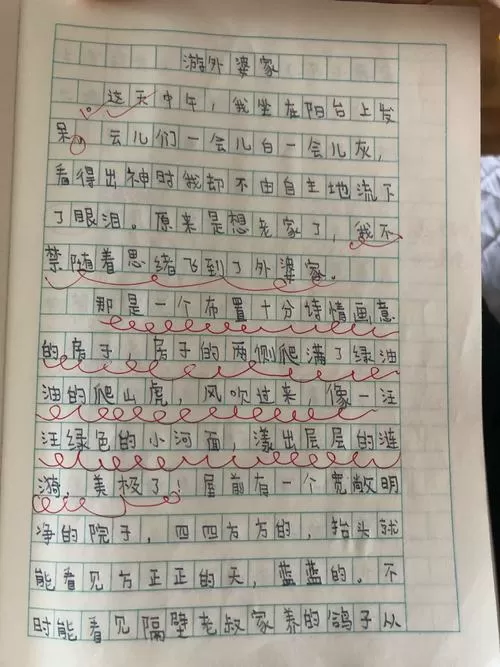 游外婆家
这天中午，我坐在阳台上发
呆。云儿们一会儿白一会儿灰，
看得出神时我却不由自主地流下
了眼泪。原来是想老家了，我不
禁随着思绪飞到了外婆家。
那是一个布置十分诗情画意
的房子，房子的两侧爬满了绿油
油的爬山虎，风吹过来，像一汪
汪绿色的小河面，漾出层层的涟
漪，美极了！屋前有一个宽敞明
净的院子，四四方方的，抬头就
能看见方正正的天，蓝蓝的。不
时能看见隔壁老叔家养的鸽子从